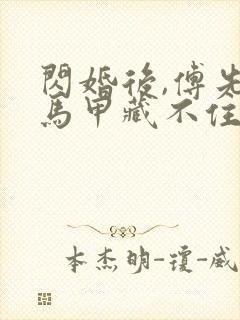 閃婚後,傅先
馬甲藏不住
本杰明-瓊-威